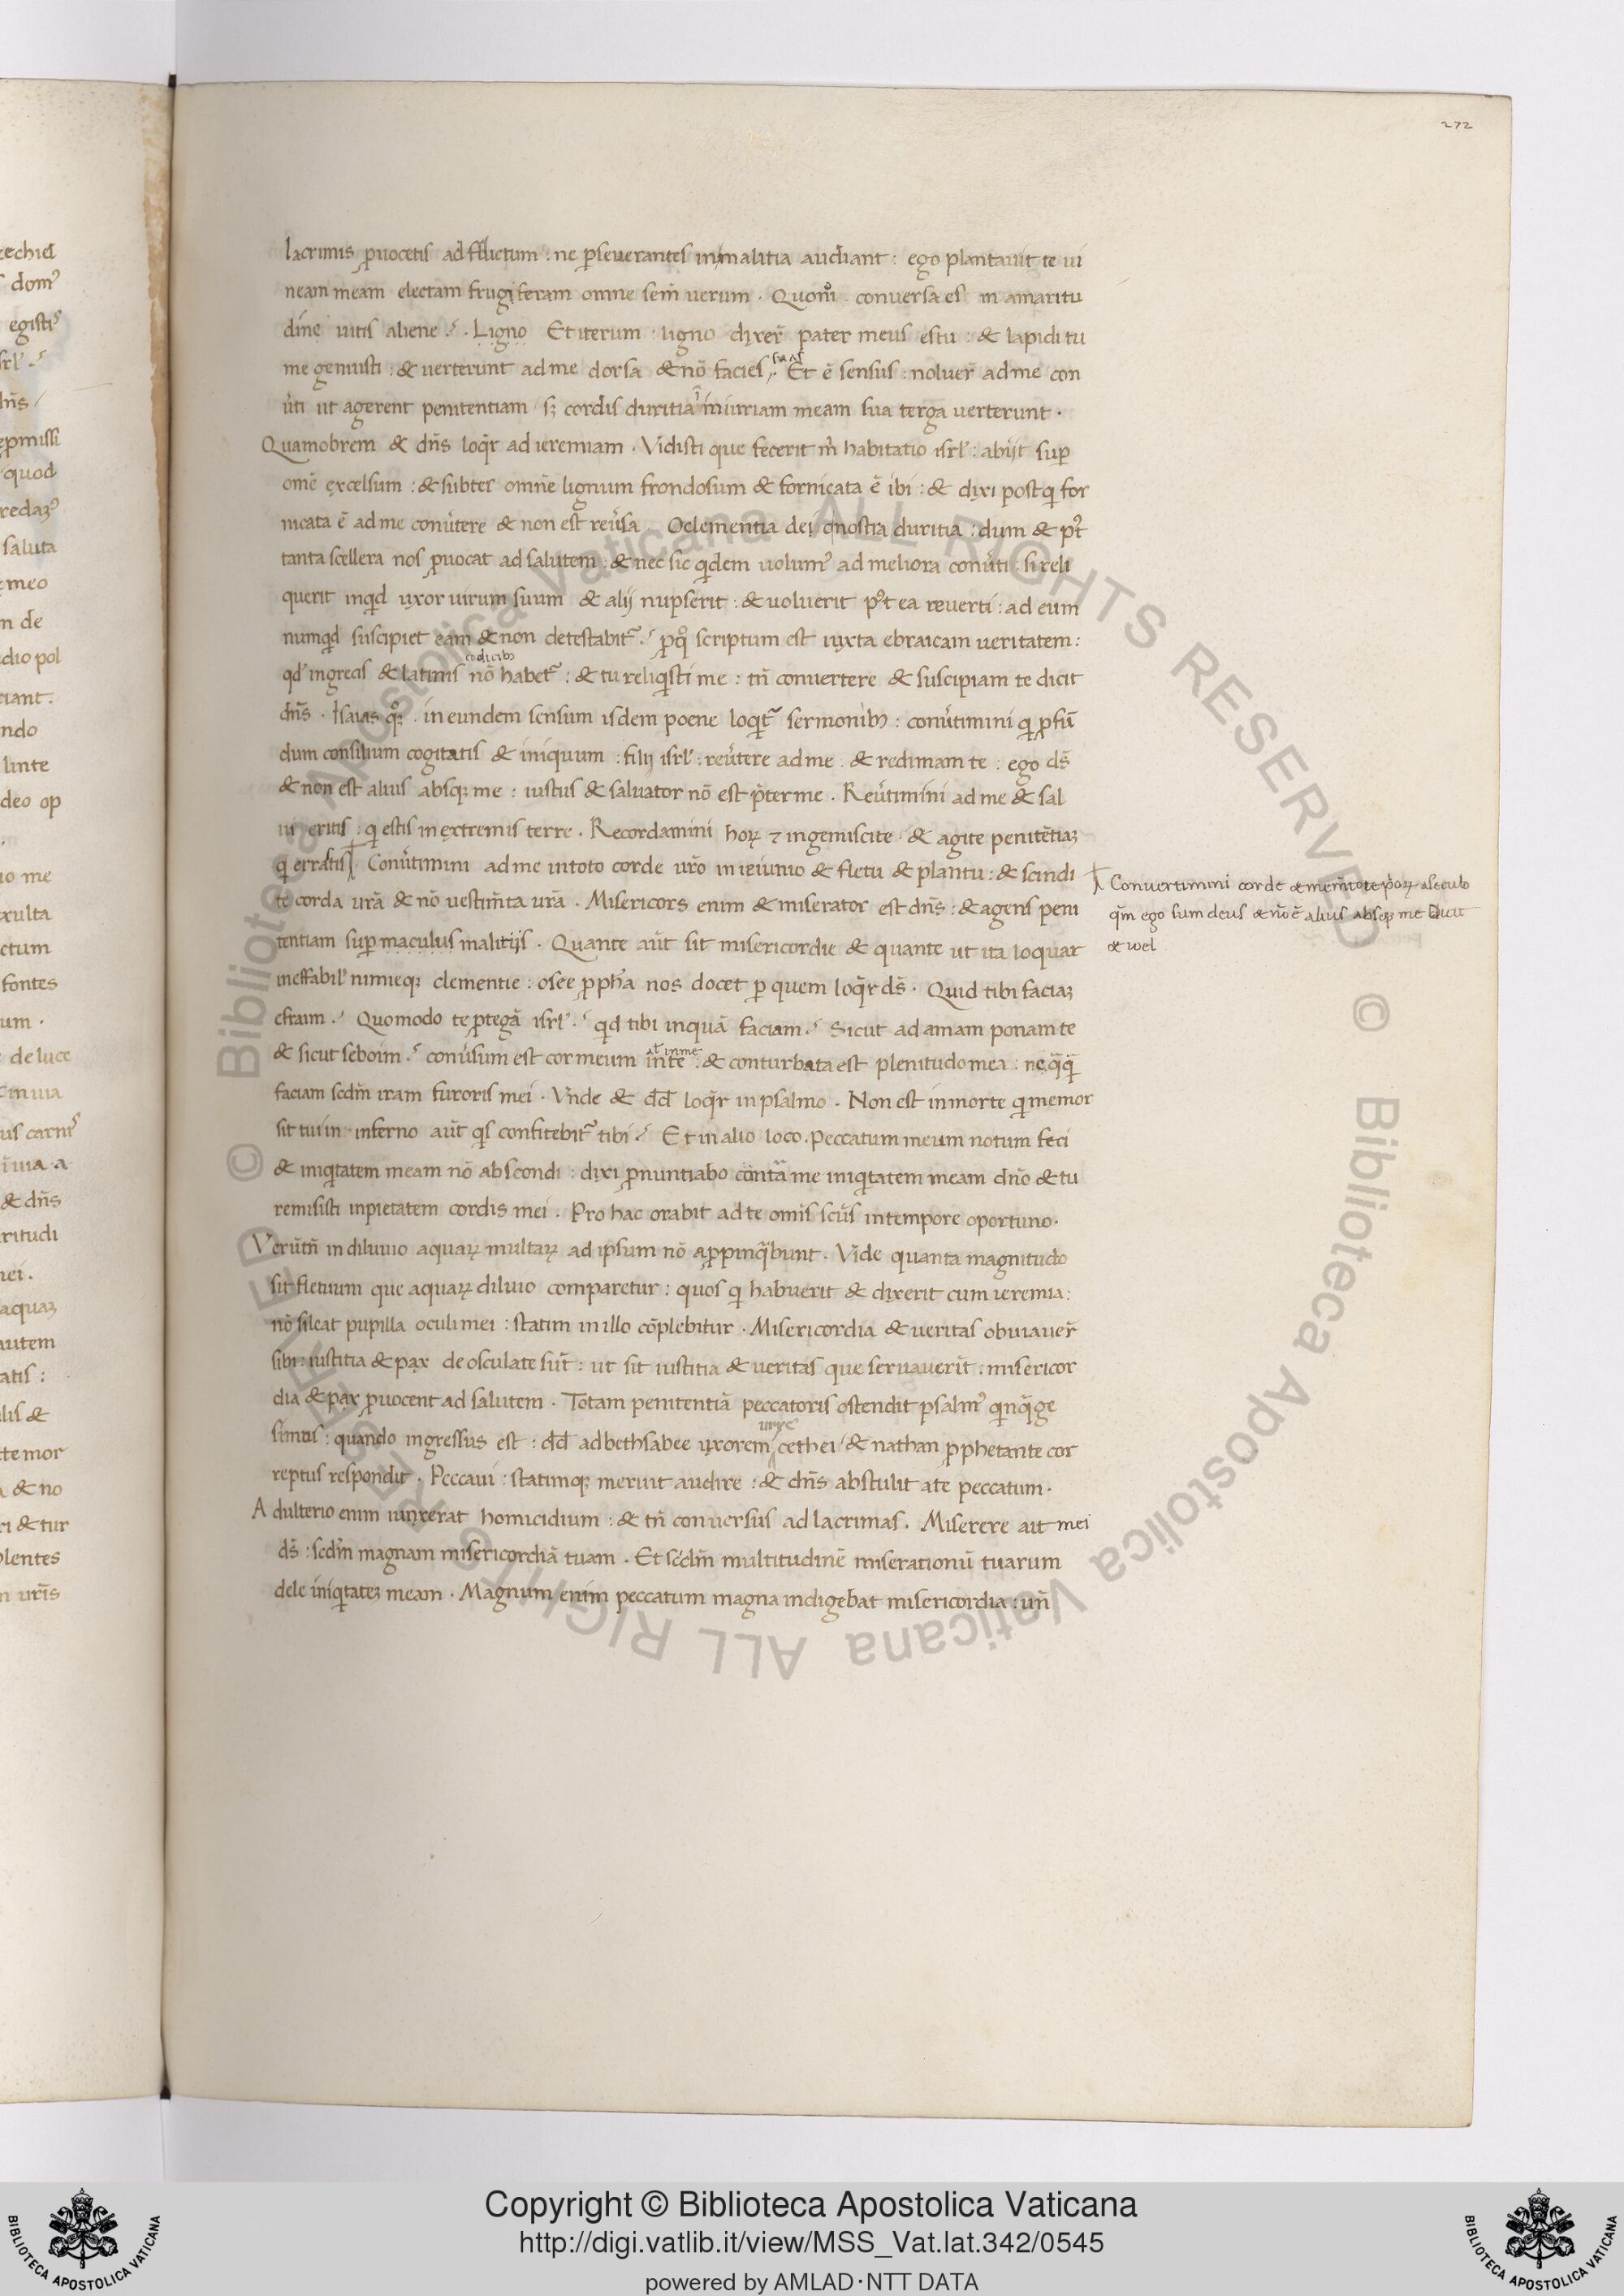 272
lacrimis ꝓuocetis ad flluctum : ne ꝑseuerantes in malitia audiant : ego plantauit te ui
neam meam electam frugiferam omne sem̄ uerum . Quom̊ . conuersa es in amaritu
dine uitis aliene ? . Ligno Et iterum : ligno dixer̄ pater meus es tu : & lapidi tu
me genuisti : & uerterunt ad me dorsa & nō facies suas . Et ē sensus : noluer̄ ad me con
u̾ti ut agerent penitentiam / sꝫ cordis duritia in iuriam meam sua terga uerterunt .
Quamobrem & dn̄s loqͥr ad ieremiam . Vidisti que fecerit m̄ habitatio isrl̓ : abijt suꝑ
om̄e excelsum : & subter omn̄e lignum frondosum & fornicata ē ibi : & dixi postqͣ for
nicata ē ad me conu̾tere & non est reu̾sa . O clementia dei o nostra duritia : dum & pͦt
tanta scellera nos ꝓuocat ad salutem : & nec sic qͥdem uolumꝰ ad meliora conu̾ti : si reli
querit inqͥd uxor uirum suum & alij nupserit : & uoluerit pͦt ea reuerti : ad eum
numqͥd suscipiet eam & non detestabit᷑ . ? ꝓ qͦ scriptum est iuxta ebraicam ueritatem :
qd̓ in grecis & latinis codicibꝫ nō habet᷑ : & tu reliqͥsti me : tn̄ conuertere & suscipiam te dicit
dn̄s . Isaias qͦꝫ . in eundem sensum isdem poene loqͥt᷑ sermonibꝫ : conu̾timini qͥ ꝓfū
dum consilium cogitatis & iniquum : filij isrl̓ : reu̾tere ad me . & redimam te : ego ds̄
& non est alius absqꝫ me : iustus & saluator nō est p̄ter me . Reu̾timini ad me & sal
ui eritis : qͥ estis in extremis terre . Recordamini hoꝝ ⁊ ingemiscite . & agite penitētiaꝫ
qͥ erratis . Conu̾timini ad me in toto corde ur̄o in ieiunio & fletu & plantu : & scindi
te corda ur̄a & nō uestim̄ta ur̄a . Misericors enim & miserator est dn̄s : & agens peni
tentiam suꝑ maculus malitijs . Quante aūt sit misericordie & quante ut ita loquar
ineffabil̓ nimieqꝫ clementie : osee ꝓph̄a nos docet ꝑ quem loqͥr ds̄ . Quid tibi faciaꝫ
efraim . ? Quomodo te ꝓtegā isrl̓ . ? qͥd tibi inquā faciam . ? Sicut adamam ponam te
& sicut seboim . ? conu̾sum est cor meum in te al̓ in me : & conturbata est plenitudo mea : neqͣqͣ
faciam scdm̄ iram furoris mei . Vnde & dd̄ loqͥr in psalmo . Non est in morte qͥ memor
sit tui in inferno aūt qͥs confitebit᷑ tibi . ? Et in alio loco . Peccatum meum notum feci
& iniqͥtatem meam nō abscondi : dixi ꝓnuntiabo contͣa me iniqͥtatem meam dn̄o & tu
remisisti inpietatem cordis mei . Pro hac orabit ad te omis scu̾s in tempore oportuno .
Verūtn̄ in diluuio aquaꝝ multaꝝ ad ipsum nō aꝓpinqͣbunt . Vide quanta magnitudo
sit fletuum que aquaꝝ diluio comparetur : quos qͥ habuerit & dixerit cum ieremia :
nō sileat pupilla oculi mei : statim in illo cōplebitur . Misericordia & ueritas obuiauer̄
sibi : iustitia & pax de osculate sūt : ut sit iustitia & ueritas que seruauerit : misericor
dia & pax ꝓuocent ad salutem . Totam penitentiā peccatoris ostendit psalmꝰ qͥnqͣge
simus : quando ingressus est : dd̄ ad bethsabee uxorem urye cethei / & nathan ꝓphetante cor
reptus respondit . Peccaui : statimqꝫ meruit audire : & dn̄s abstulit a te peccatum .
Adulterio enim iunxerat homicidium : & tn̄ conuersus ad lacrimas . Miserere ait mei
ds̄ : scdm̄ magnam misericordiā tuam . Et scdm̄ multitudinē miserationū tuarum
dele iniqͥtateꝫ meam . Magnum enim peccatum magna indigebat misericordia : un̄
Conuertimini corde & mem̄tote pͥoꝝ a seculo
qm̄ ego sum deus & nō ē alius absqꝫ me Dicit
& ioel
Copyright © Biblioteca Apostolica Vaticana
http://digi.vatlib.it/view/MSS_Vat.lat.342/0545
powered by AMLAD·NTT DATA
BIBLIOTECA APOSTOLICA VATICANA
BIBLIOTECA APOSTOLICA VATICANA
© Biblioteca Apostolica Vaticana ALL RIGHTS RESERVED © Biblioteca Apostolica Vaticana ALL RIGHTS RESERVED